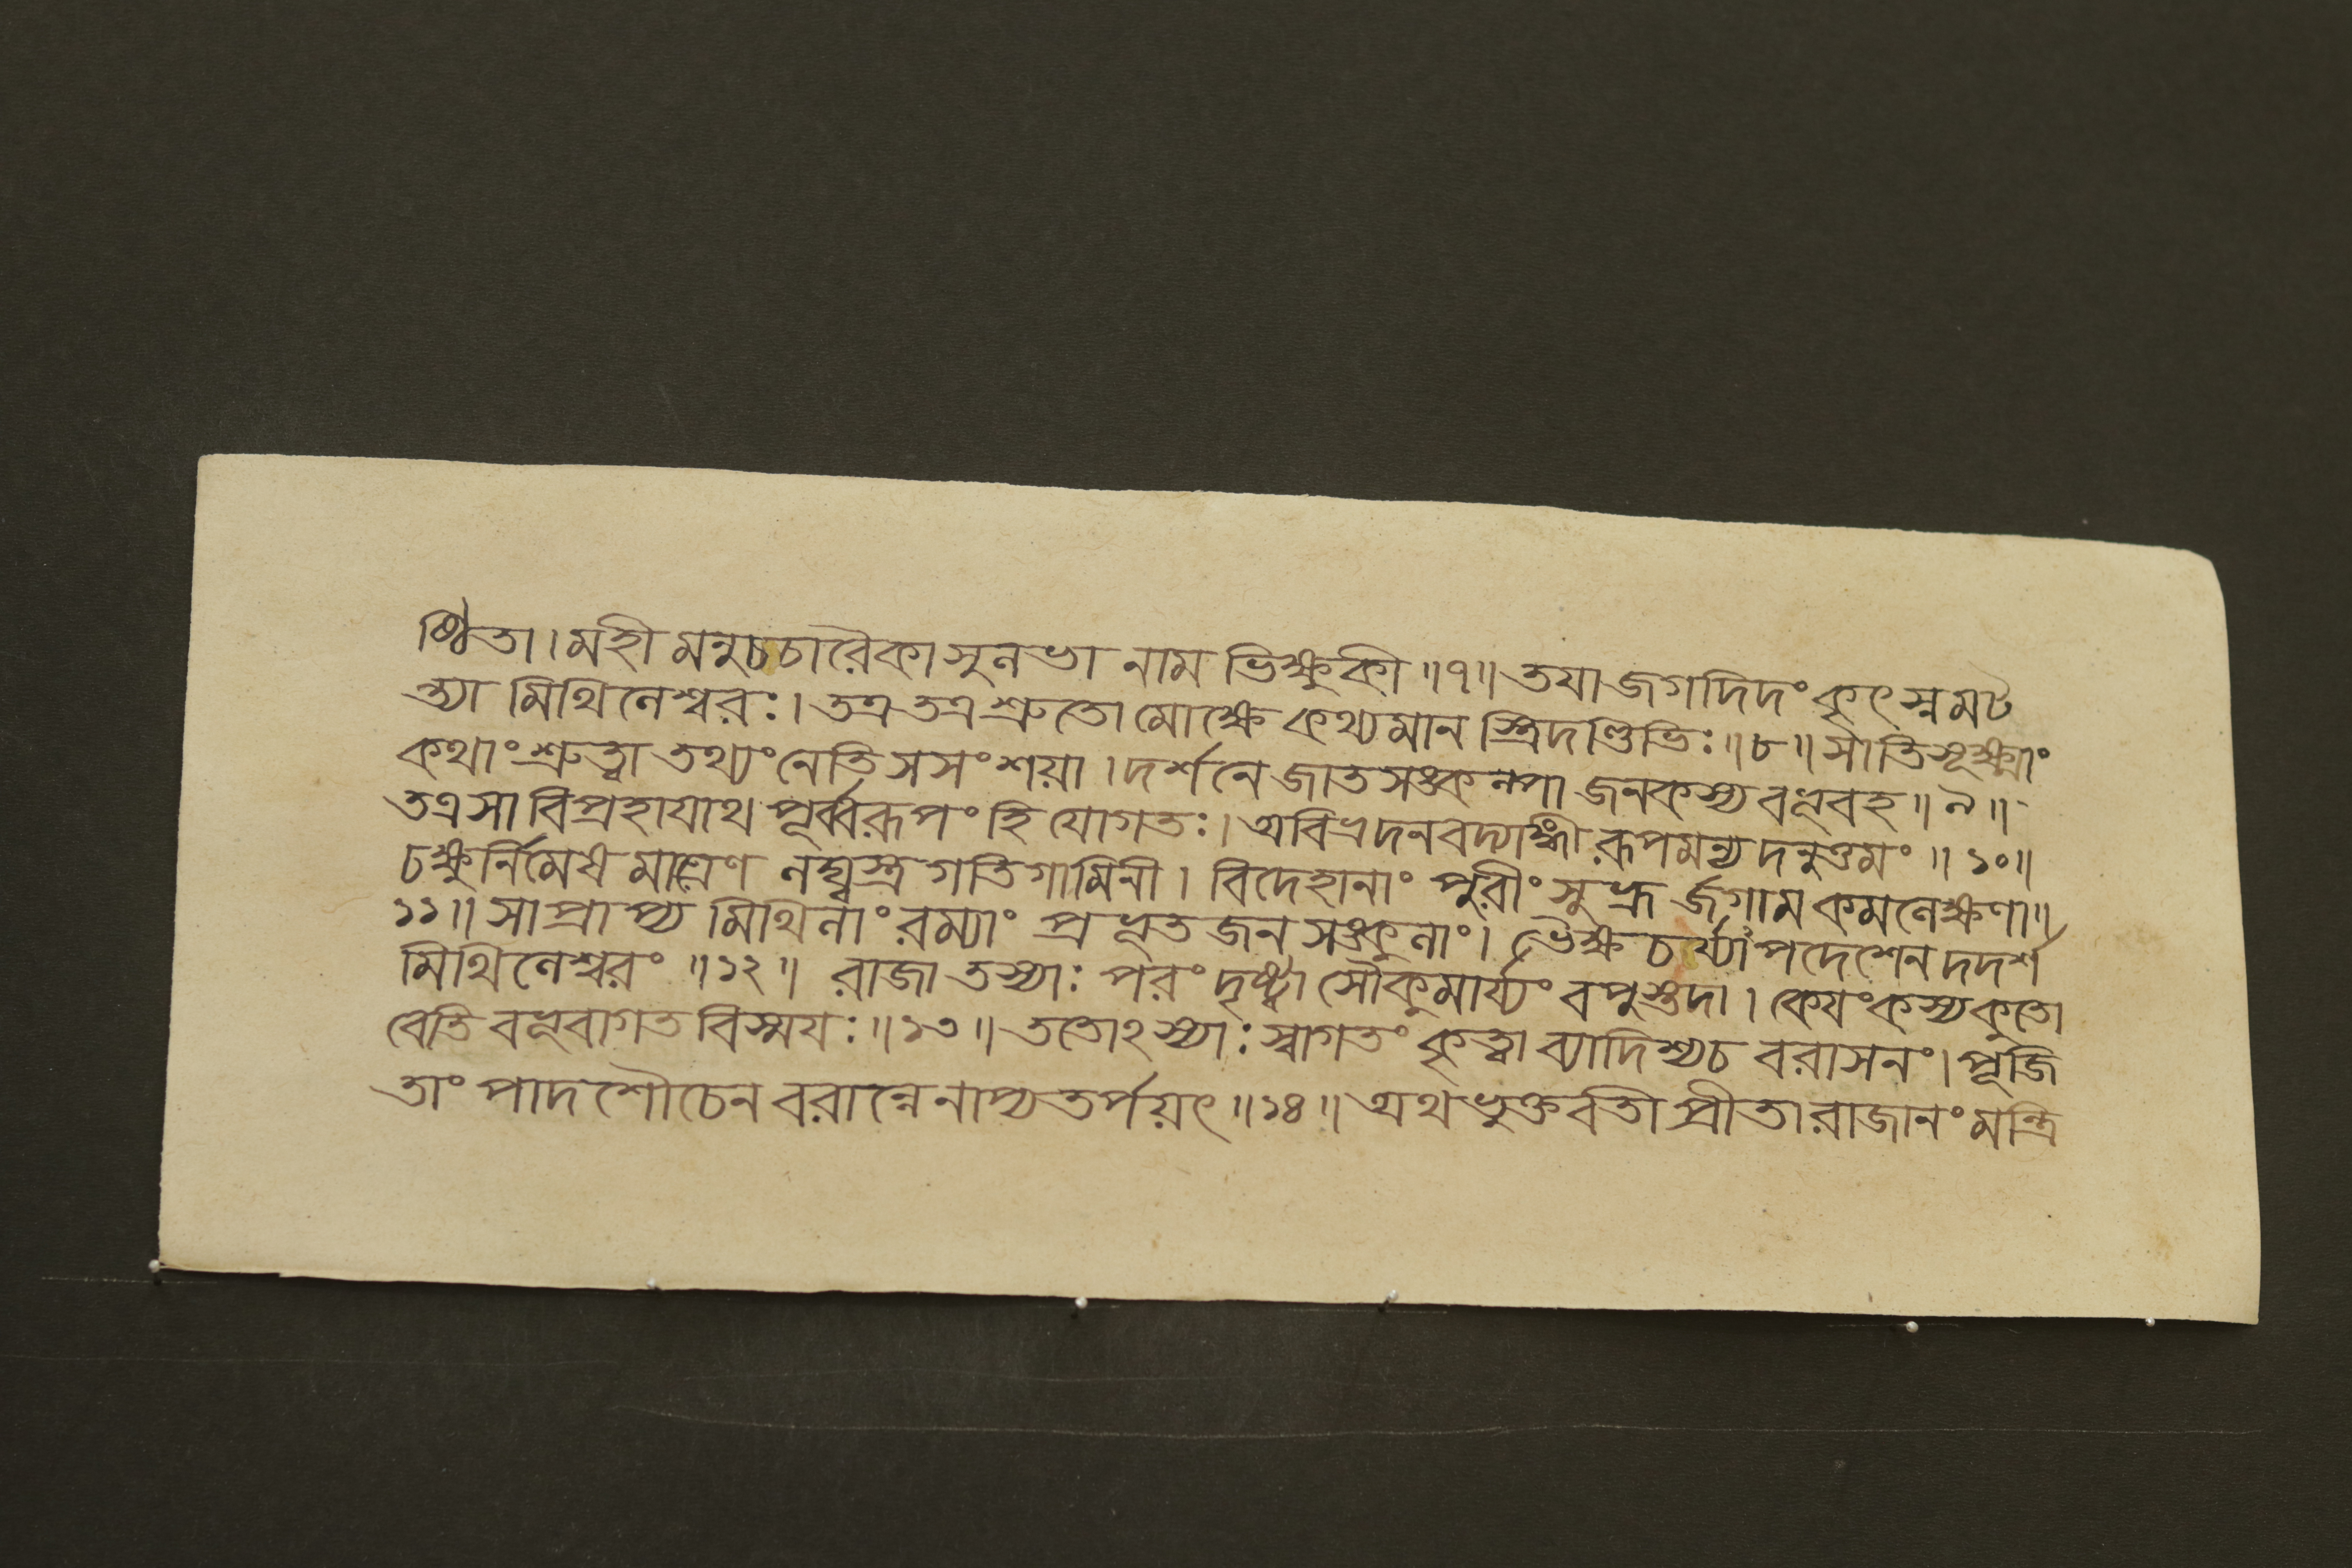 ষ্ঠিতা। মহী মনুচচারৈকা সুলভা নাম ভিক্ষুকী ॥৭॥ তযা জগদিদং কৃৎস্নমট
ন্ত্যা মিথিলেশ্বরঃ। তত্র তত্র শ্রুতো মোক্ষে কথ্যমান স্ত্রিদণ্ডিভিঃ ॥৮॥ সাতিসূক্ষ্মাং
কথাং শ্রুত্বা তথ্যং নেতি সসংশয়া। দর্শনে জাতসঙ্কল্পা জনকস্য বভূবহ ॥৯॥
তত্র সা বিপ্রহাযাথ পূর্ব্বরূপং হি যোগতঃ। অবিভ্রদনবদ্যাঙ্গী রূপমন্যদনুত্তমং ॥১০॥
চক্ষুর্নিমেষ মাত্রেণ লঘ্বস্ত্র গতিগামিনী। বিদেহানাং পুরীং সুভ্রূ র্জগাম কমলেক্ষণা॥
১১॥ সা প্রাপ্য মিথিলাং রম্যাং প্রভূত জন সঙ্কুলাং। ভৈক্ষ চর্য্যাপদেশেন দদর্শ
মিথিলেশ্বরং ॥১২॥ রাজা তস্যাঃ পরং দৃষ্ট্বা সৌকুমার্য্যং বপুস্তদা। কেযং কস্য কুতো
বেতি বভূবাগত বিস্ময়ঃ ॥১৩॥ ততোঽস্যাঃ স্বাগতং কৃত্বা ব্যাদিশ্যচ বরাসনং। পূজি
তাং পাদশৌচেন বরান্নেনাপ্যতর্পয়ৎ ॥১৪॥ অথ ভুক্তবতী প্রীতা রাজানং মন্ত্রি